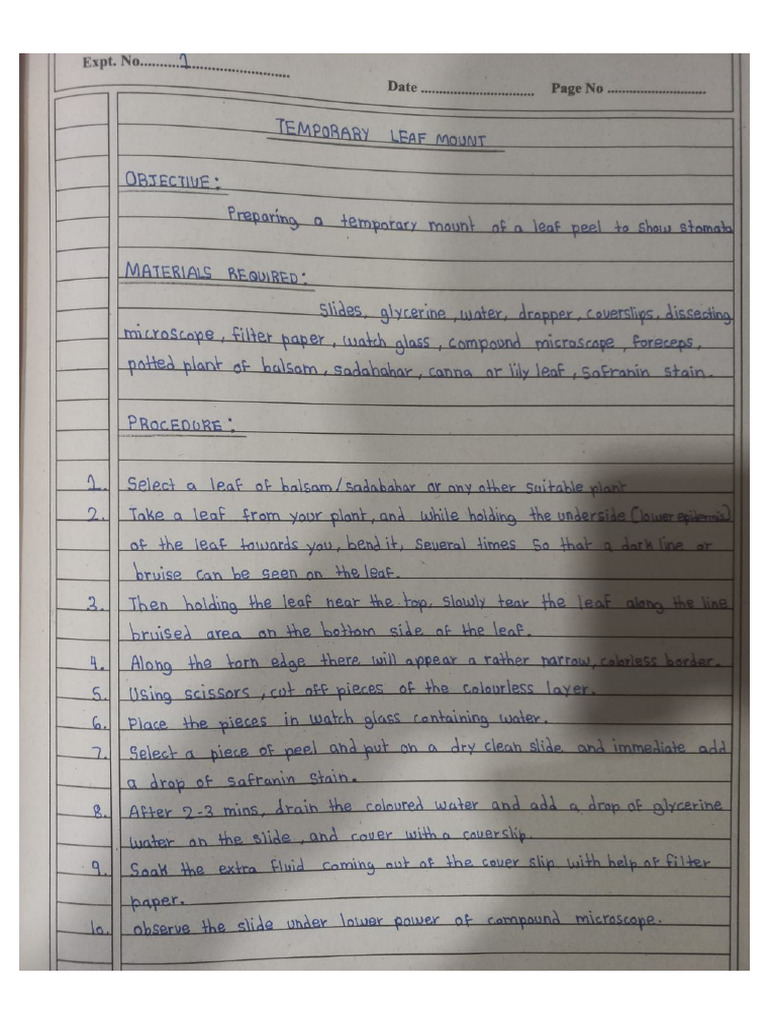 Expt. No..........1............................
Date ............................... Page No ...........................
TEMPORARY LEAF MOUNT
OBJECTIVE:
Preparing a temporary mount of a leaf peel to show stomata
MATERIALS REQUIRED:
Slides, glycerine, water, dropper, coverslips, dissecting
microscope, filter paper, watch glass, compound microscope, foreceps,
potted plant of balsam, sadabahar, canna or lily leaf, safranin stain.
PROCEDURE:
1. Select a leaf of balsam/sadabahar or any other suitable plant
2. Take a leaf from your plant, and while holding the underside (lower epidermis)
of the leaf towards you, bend it, several times so that a dark line or
bruise can be seen on the leaf.
3. Then holding the leaf near the top, slowly tear the leaf along the line
bruised area on the bottom side of the leaf.
4. Along the torn edge there will appear a rather narrow, colorless border.
5. Using scissors, cut off pieces of the colourless layer.
6. Place the pieces in watch glass containing water.
7. Select a piece of peel and put on a dry clean slide and immediate add
a drop of safranin stain.
8. After 2-3 mins, drain the coloured water and add a drop of glycerine
water on the slide, and cover with a coverslip.
9. Soak the extra fluid coming out of the cover slip with help of filter
paper.
10. observe the slide under lower power of compound microscope.